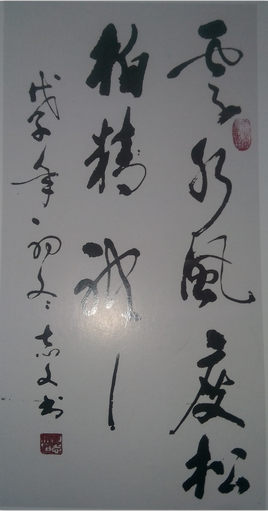 雲水風度松
柏精神
戊子年初冬志文书